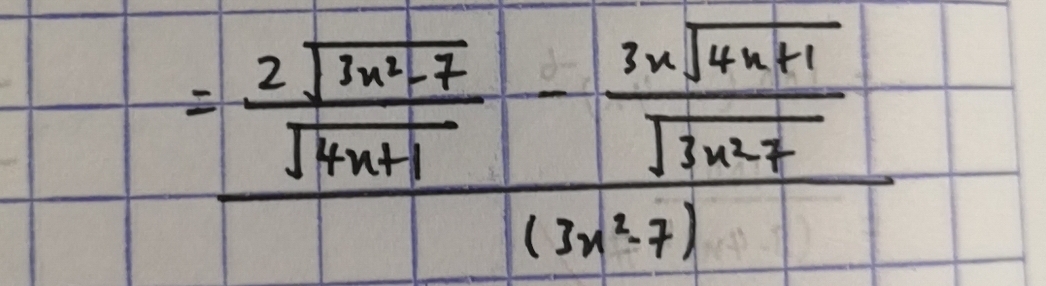 = \frac{\frac{2\sqrt{3x^2-7}}{\sqrt{4x+1}} - \frac{3x\sqrt{4x+1}}{\sqrt{3x^2-7}}}{(3x^2-7)}